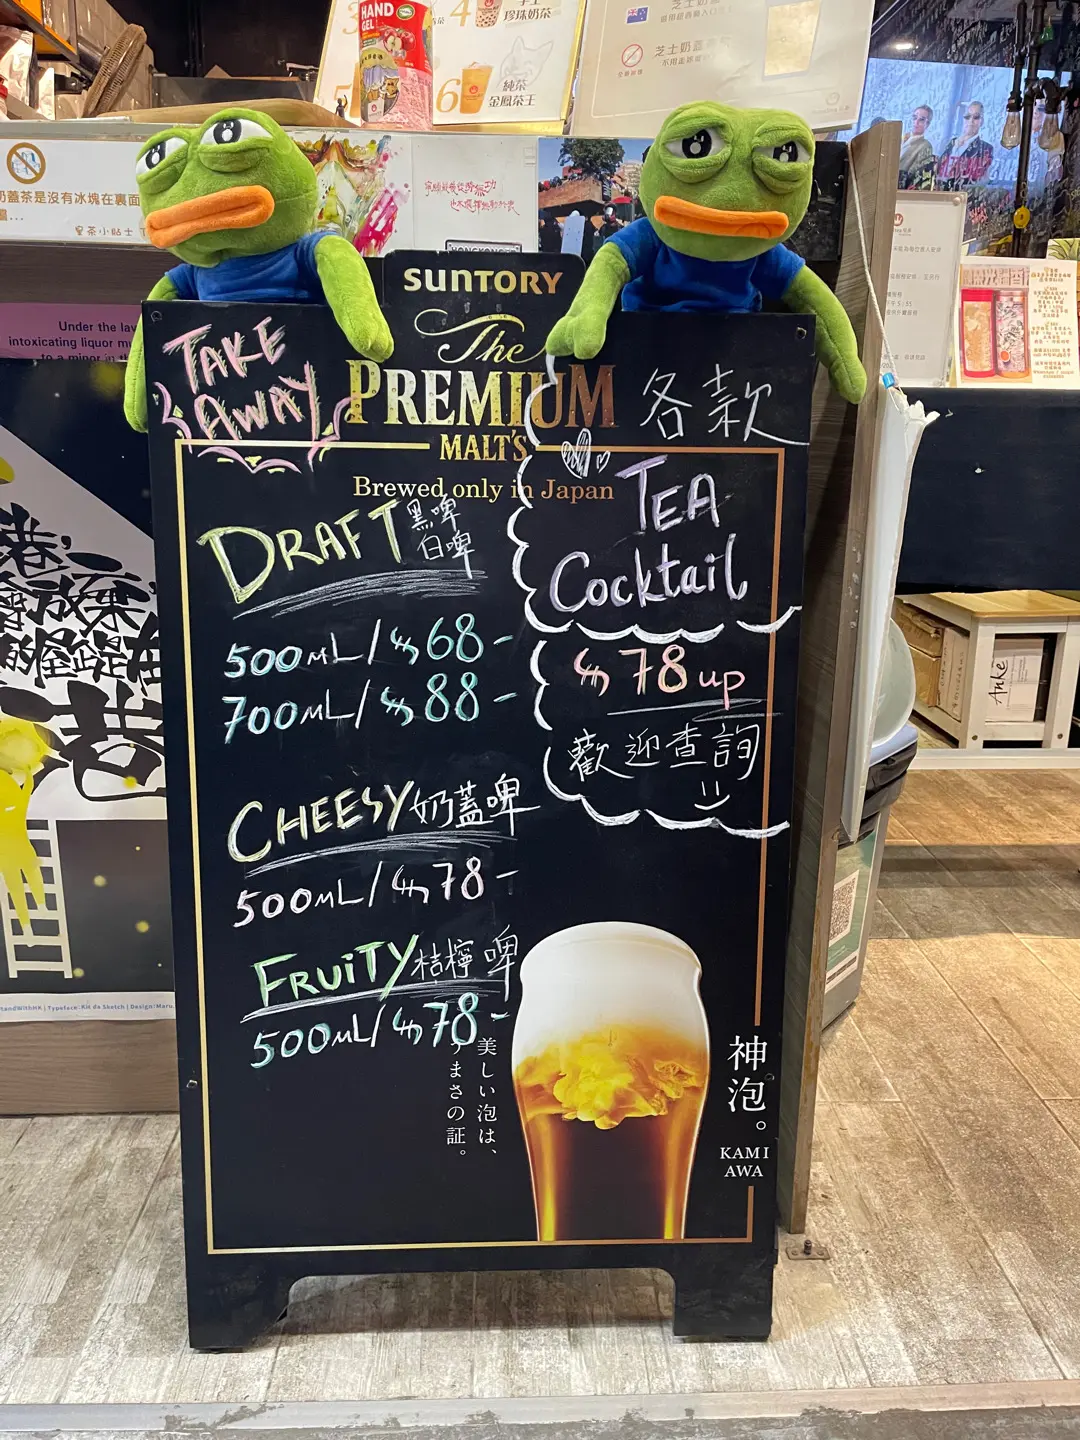 HAND
GEL
4
珍珠奶茶
5
6
純茶
金鳳茶王
芝士奶蓋
奶蓋茶是沒有冰塊在裏面
皇茶小貼士
Under the law
intoxicating liquor mu
to a minor in th
SUNTORY
The
PREMIUM
MALT'S
Brewed only in Japan
TAKE
AWAY
DRAFT 黑啤
白啤
500mL/$68-
700mL/$88-
CHEESY 奶蓋啤
500mL/$78-
FRUiTY 桔檸啤
500mL/$78-
各款
TEA
Cocktail
$78 up
歡迎查詢
美しい泡は、
うまさの証。
神泡。
KAMI
AWA
Anke
tandWithHK | Typeface: Kit da Sketch | Design: Maru